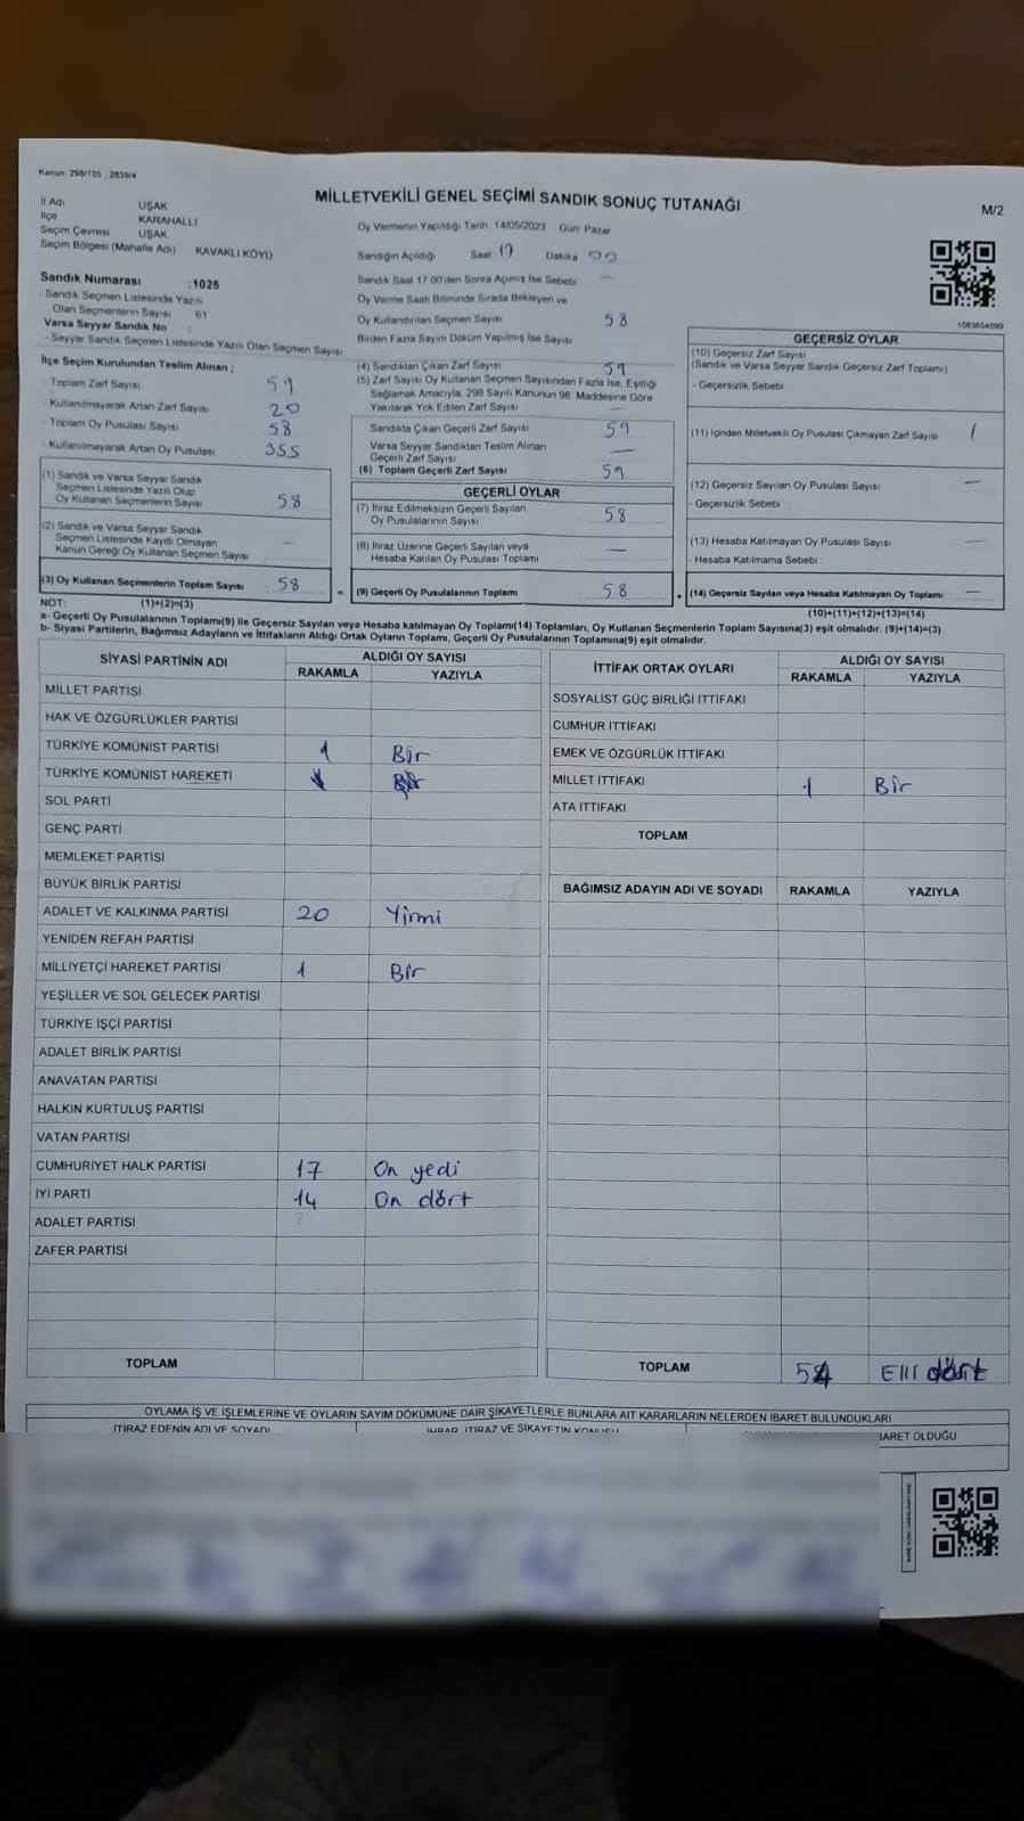 Kanun: 298/105, 2839/4
MİLLETVEKİLİ GENEL SEÇİMİ SANDIK SONUÇ TUTANAĞI
M/2
İl Adı UŞAK
İlçe KARAHALLI
Seçim Çevresi UŞAK
Seçim Bölgesi (Mahalle Adı) KAVAKLI KÖYÜ
Sandık Numarası :1025
Sandık Seçmen Listesinde Yazılı
Olan Seçmenlerin Sayısı 61
Varsa Seyyar Sandık No :
- Seyyar Sandık Seçmen Listesinde Yazılı Olan Seçmen Sayısı
Oy Vermenin Yapıldığı Tarih 14/05/2023 Gün Pazar
Sandığın Açıldığı Saat 17 Dakika
Sandık Saat 17.00'den Sonra Açılmış İse Sebebi
Oy Verme Saati Bitiminde Sırada Bekleyen ve
Oy Kullandırılan Seçmen Sayısı 58
Birden Fazla Sayım Döküm Yapılmış İse Sayısı
1083654099
İlçe Seçim Kurulundan Teslim Alınan ;
- Toplam Zarf Sayısı 59
- Kullanılmayarak Artan Zarf Sayısı 20
- Toplam Oy Pusulası Sayısı 58
- Kullanılmayarak Artan Oy Pusulası 355
(1) Sandık ve Varsa Seyyar Sandık
Seçmen Listesinde Yazılı Olup
Oy Kullanan Seçmenlerin Sayısı 58
(2) Sandık ve Varsa Seyyar Sandık
Seçmen Listesinde Kayıtlı Olmayan
Kanun Gereği Oy Kullanan Seçmen Sayısı –
(3) Oy Kullanan Seçmenlerin Toplam Sayısı 58
(4) Sandıktan Çıkan Zarf Sayısı 59
(5) Zarf Sayısı Oy Kullanan Seçmen Sayısından Fazla İse, Eşitliği
Sağlamak Amacıyla, 298 Sayılı Kanunun 98. Maddesine Göre
Yakılarak Yok Edilen Zarf Sayısı
Sandıkta Çıkan Geçerli Zarf Sayısı 59
Varsa Seyyar Sandıktan Teslim Alınan
Geçerli Zarf Sayısı —
(6) Toplam Geçerli Zarf Sayısı 59
GEÇERLİ OYLAR
(7) İtiraz Edilmeksizin Geçerli Sayılan
Oy Pusulalarının Sayısı 58
(8) İtiraz Üzerine Geçerli Sayılan veya
Hesaba Katılan Oy Pusulası Toplamı —
= (9) Geçerli Oy Pusulalarının Toplamı 58
GEÇERSİZ OYLAR
(10) Geçersiz Zarf Sayısı
(Sandık ve Varsa Seyyar Sandık Geçersiz Zarf Toplamı)
- Geçersizlik Sebebi
(11) İçinden Milletvekili Oy Pusulası Çıkmayan Zarf Sayısı 1
(12) Geçersiz Sayılan Oy Pusulası Sayısı —
- Geçersizlik Sebebi
(13) Hesaba Katılmayan Oy Pusulası Sayısı —
- Hesaba Katılmama Sebebi :
+ (14) Geçersiz Sayılan veya Hesaba Katılmayan Oy Toplamı —
NOT: (1)+(2)=(3)
(10)+(11)+(12)+(13)=(14)
a- Geçerli Oy Pusulalarının Toplamı(9) ile Geçersiz Sayılan veya Hesaba katılmayan Oy Toplamı(14) Toplamları, Oy Kullanan Seçmenlerin Toplam Sayısına(3) eşit olmalıdır. (9)+(14)=(3)
b- Siyasi Partilerin, Bağımsız Adayların ve İttifakların Aldığı Ortak Oyların Toplamı, Geçerli Oy Pusulalarının Toplamına(9) eşit olmalıdır.
SİYASİ PARTİNİN ADI ALDIĞI OY SAYISI
RAKAMLA YAZIYLA
MİLLET PARTİSİ
HAK VE ÖZGÜRLÜKLER PARTİSİ
TÜRKİYE KOMÜNİST PARTİSİ 1 Bir
TÜRKİYE KOMÜNİST HAREKETİ
SOL PARTİ
GENÇ PARTİ
MEMLEKET PARTİSİ
BÜYÜK BİRLİK PARTİSİ
ADALET VE KALKINMA PARTİSİ 20 Yirmi
YENİDEN REFAH PARTİSİ
MİLLİYETÇİ HAREKET PARTİSİ 1 Bir
YEŞİLLER VE SOL GELECEK PARTİSİ
TÜRKİYE İŞÇİ PARTİSİ
ADALET BİRLİK PARTİSİ
ANAVATAN PARTİSİ
HALKIN KURTULUŞ PARTİSİ
VATAN PARTİSİ
CUMHURİYET HALK PARTİSİ 17 On yedi
İYİ PARTİ 14 On dört
ADALET PARTİSİ
ZAFER PARTİSİ
TOPLAM
İTTİFAK ORTAK OYLARI ALDIĞI OY SAYISI
RAKAMLA YAZIYLA
SOSYALİST GÜÇ BİRLİĞİ İTTİFAKI
CUMHUR İTTİFAKI
EMEK VE ÖZGÜRLÜK İTTİFAKI
MİLLET İTTİFAKI 1 Bir
ATA İTTİFAKI
TOPLAM
BAĞIMSIZ ADAYIN ADI VE SOYADI RAKAMLA YAZIYLA
TOPLAM 54 Elli dört
OYLAMA İŞ VE İŞLEMLERİNE VE OYLARIN SAYIM DÖKÜMÜNE DAİR ŞİKAYETLERLE BUNLARA AİT KARARLARIN NELERDEN İBARET BULUNDUKLARI
İTİRAZ EDENİN ADI VE SOYADI İHBAR, İTİRAZ VE ŞİKAYETİN KONUSU BARET OLDUĞU